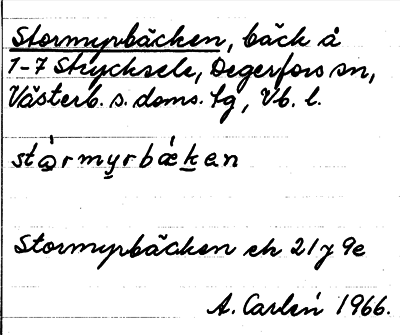 Stormyrbäcken, bäck å
1-7 Strycksele, Degerfors sn,
Västerb. s. doms. tg, Vb. l.
stormyrbækan
Stormyrbäcken ek 21 J 9e
A. Carlén 1966.